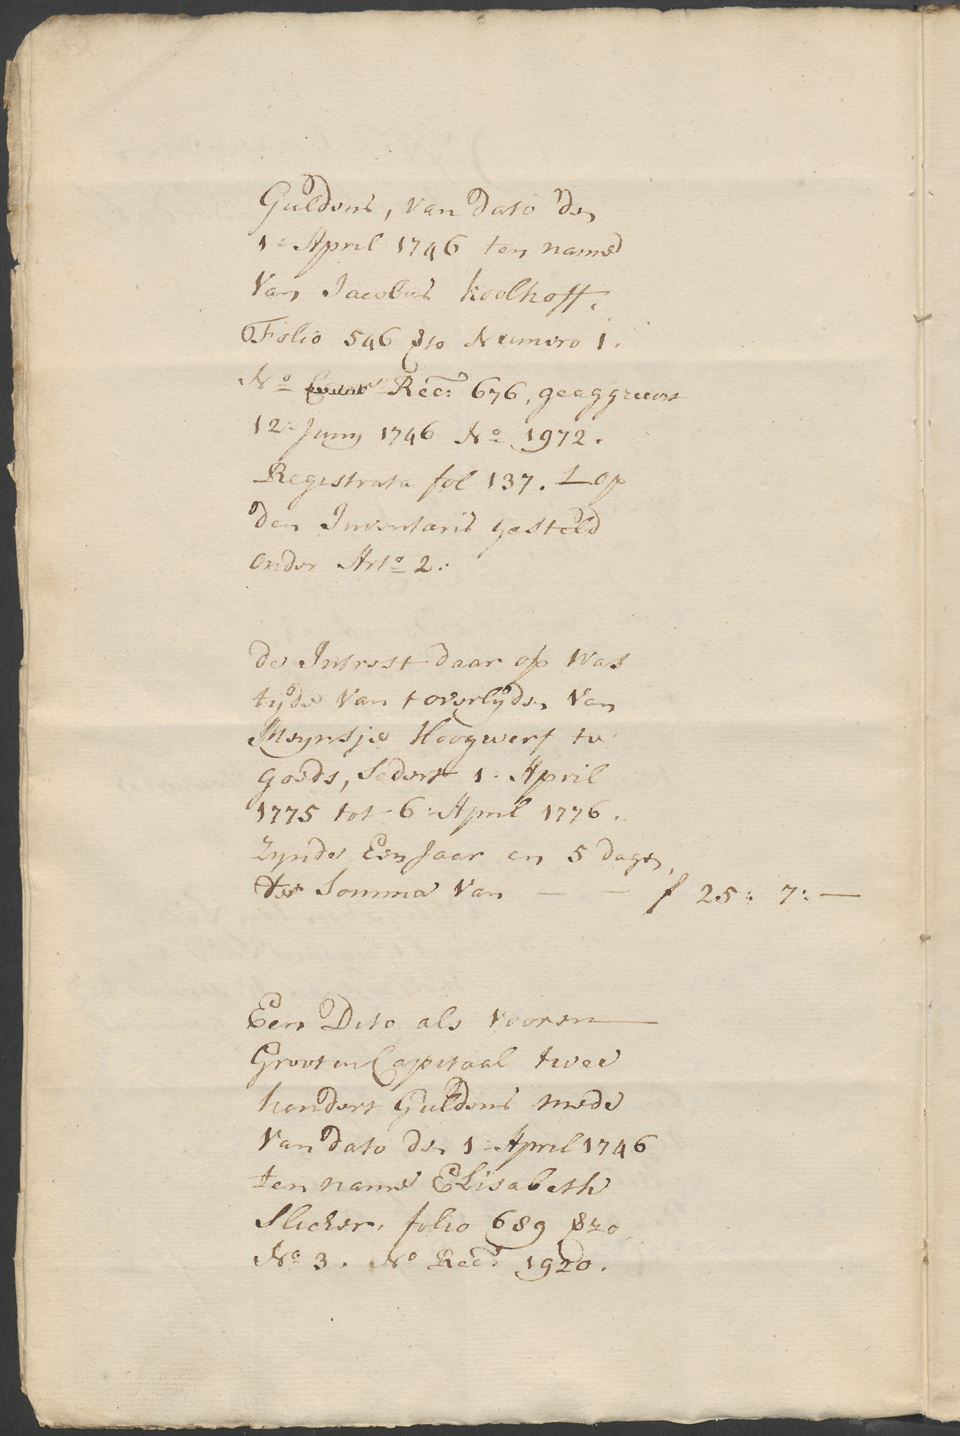 Guldens, van dato den
1e April 1746 ten name
van Jacobus Koolhoff.
Folio 546 Numero 1.
No Rec: 676, geaggreert
12e Juny 1746 No 1972.
Registrata fol 137. op
den Inventaris gesteld
onder Arto 2:
de Intrest daar op was
tyde van t overlyden van
Meynsje Hoogwerf te
goede, sedert 1: April
1775 tot 6: April 1776.
zynde Een Jaar en 5 dagen,
ter Somma van — — f 25: 7: —
Een Dito als vooren —
Groot in Capitaal twee
hondert Guldens mede
van dato den 1e April 1746
ten name Elisabeth
Slicker, folio 689
No 3. No Rec: 1920.